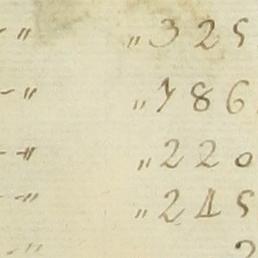 -" " 325
-" " 786
-" " 220
-" " 245
-" 2